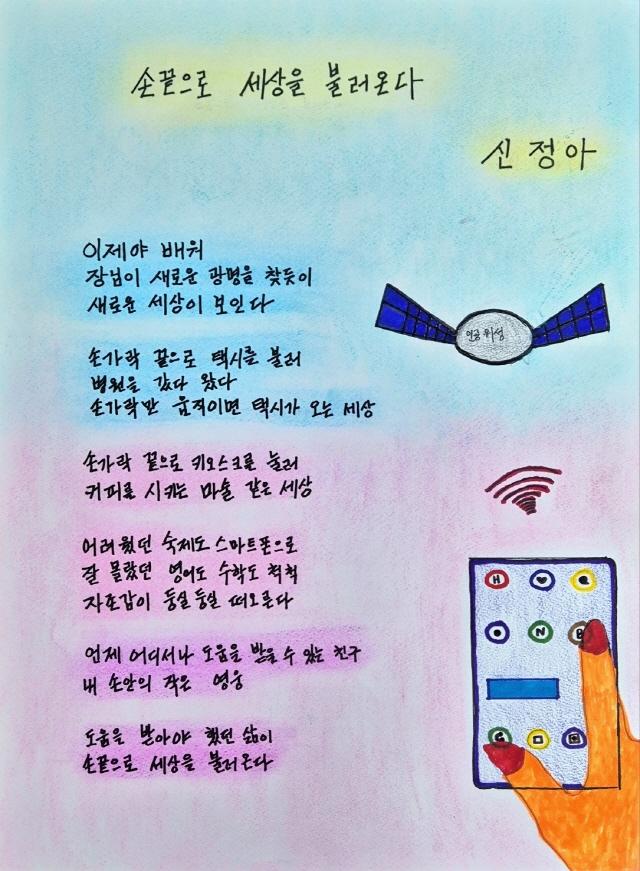 손끝으로 세상을 불러온다
신정아
이제야 배워
장님이 새로운 광명을 찾듯이
새로운 세상이 보인다
손가락 끝으로 택시를 불러
병원을 갔다 왔다
손가락만 움직이면 택시가 오는 세상
손가락 끝으로 키오스크를 눌러
커피를 시키는 마술 같은 세상
어려웠던 숙제도 스마트폰으로
잘 몰랐던 영어도 수학도 척척
자존감이 둥실 둥실 떠오른다
언제 어디서나 도움을 받을 수 있는 친구
내 손안의 작은 영웅
도움을 받아야 했던 삶이
손끝으로 세상을 불러온다
인공위성
H
N
B